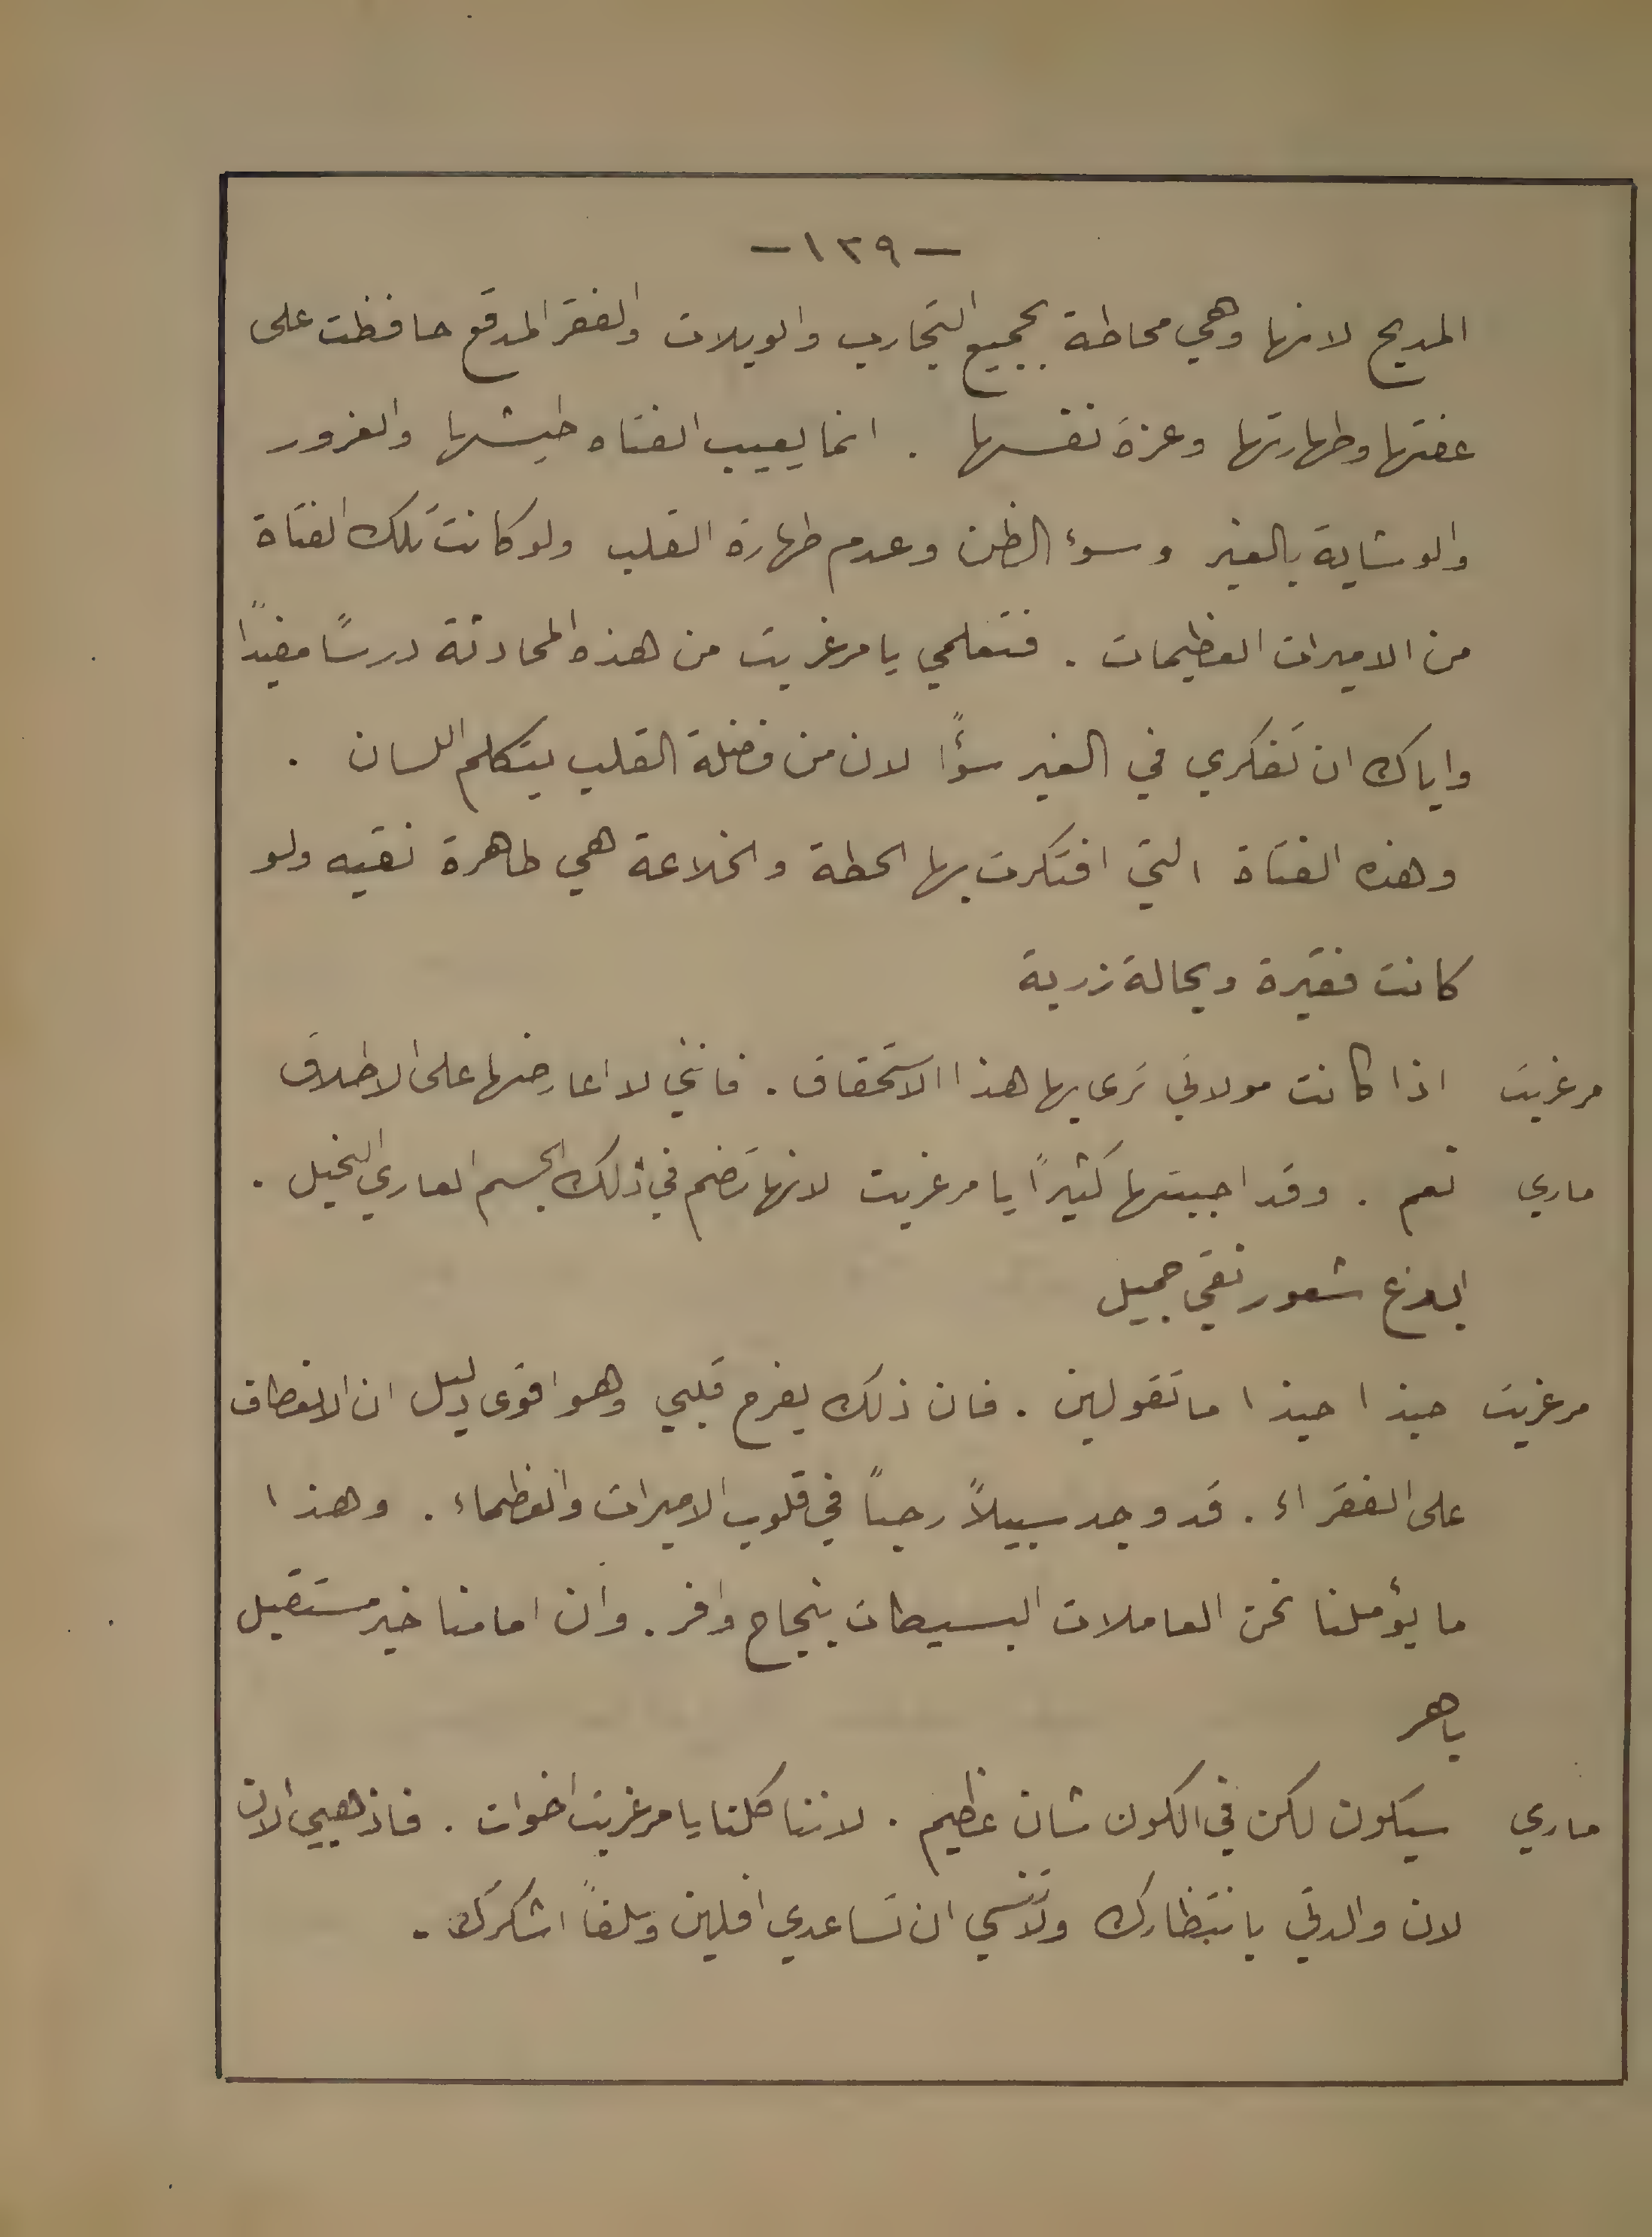 -١٣٩-
المديح لانها وهي محاطة بجميع التجارب والويلات والفقر المدقع حافظت على
عفتها وطهارتها وعزة نفسها . انما يعيب الفتاه طيشها والغرور
والوشاية بالغير وسوء الظن وعدم طهارة القلب ولو كانت تلك الفتاة
من الاميرات العظيمات . فتعلمي يا مرغريت من هذه المحادثة درساً مفيداً
واياك ان تفكري في الغير سؤًا لان من فضلة القلب يتكلم اللسان .
وهذه الفتاة التي افتكرت بها الحطة والخلاعة هي طاهرة نقيه ولو
كانت فقيرة وبحالة زرية
مرغريت اذا كانت مولاتي ترى بها هذا الاستحقاق . فانني لا اعارضها على الاطلاق
ماري نعم . وقد احببتها كثيراً يا مرغريت لانها تضم في ذلك الجسم العاري النحيل .
ابدع شعور نقي جميل
مرغريت حبذا حبذا ما تقولين . فان ذلك يفرح قلبي وهو اقوى دليل ان الانعطاف
على الفقراء . قد وجد سبيلاً رحباً في قلوب الاميرات والعظماء . وهذا
ما يؤملنا نحن العاملات البسيطات بنجاح وافر . وان امامنا خير مستقبل
باهر
ماري سيكون لكن في الكون شان عظيم . لاننا كلنا يا مرغريت اخوات . فاذهبي الان
لان والدتي بانتظارك ولا تنسي ان تساعدي افلين وسلفاً اشكرك .